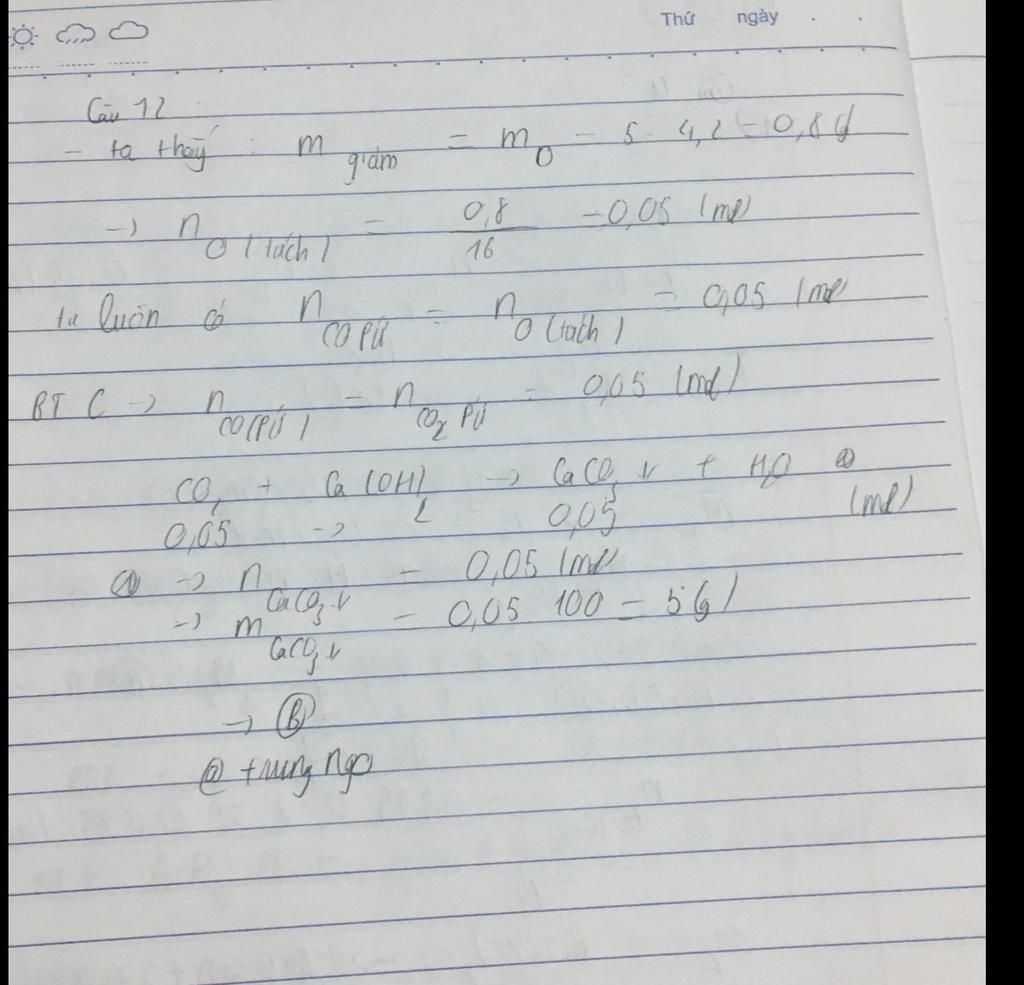 Thứ ngày . .
Câu 12
- ta thấy : m giảm = m O = 5 - 4,2 = 0,8 g
→ n O (tách) = 0,8 / 16 = 0,05 (mol)
ta luôn có n CO PƯ = n O (tách) = 0,05 (mol)
BT C → n CO (PƯ) = n CO2 PƯ = 0,05 (mol)
CO2 + Ca(OH)2 → CaCO3 ↓ + H2O ①
0,05 → 0,05 (mol)
① → n CaCO3 ↓ = 0,05 (mol)
→ m CaCO3 ↓ = 0,05 100 = 5 (g)
→ Ⓑ
@ trung ngo